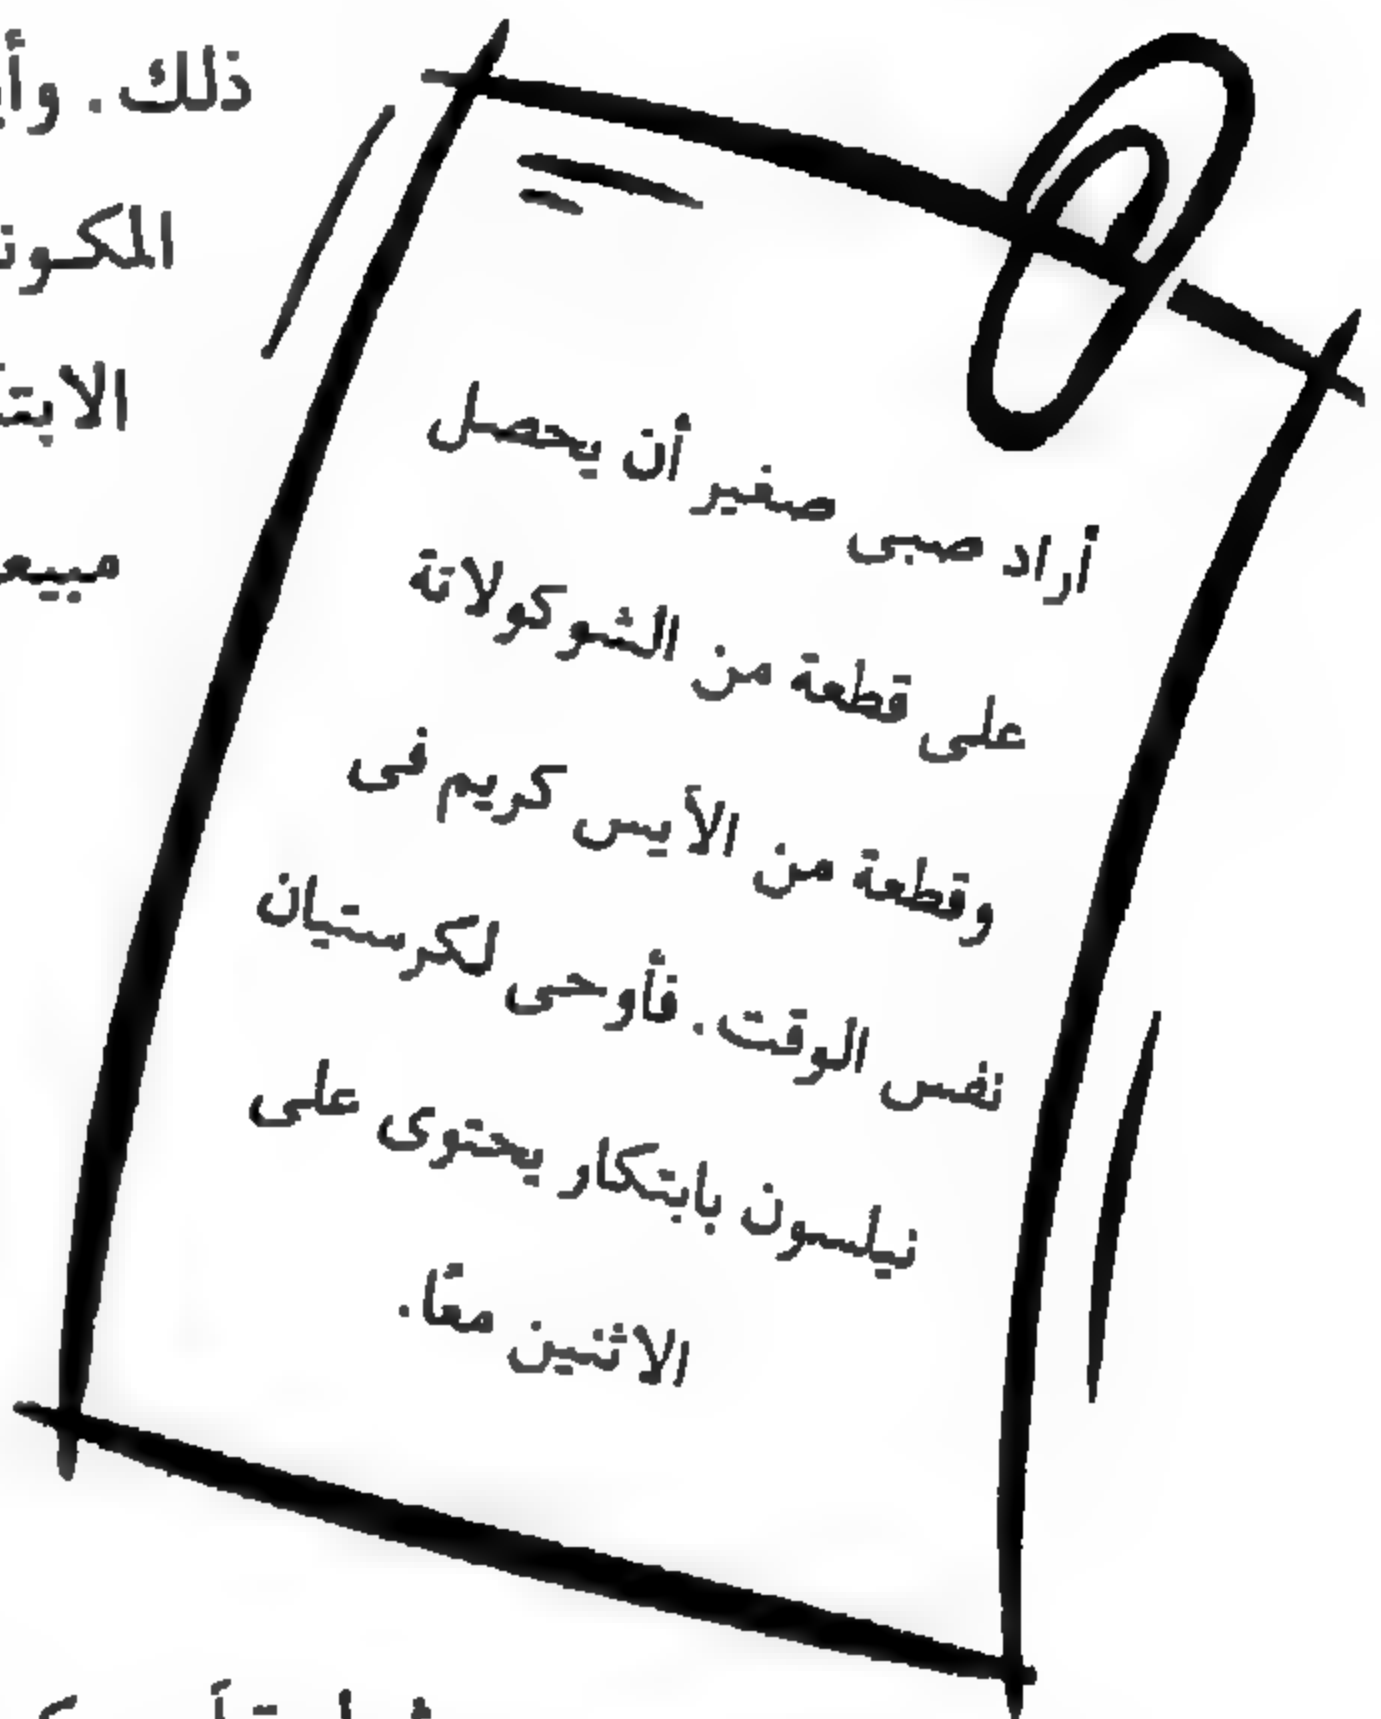 أراد صبى صغير أن يحصل
على قطعة من الشوكولاتة
وقطعة من الآيس كريم فى
نفس الوقت. فأوحى لكرستيان
نيلسون بابتكار يحتوى على
الاثنين معًا.
ذلك.